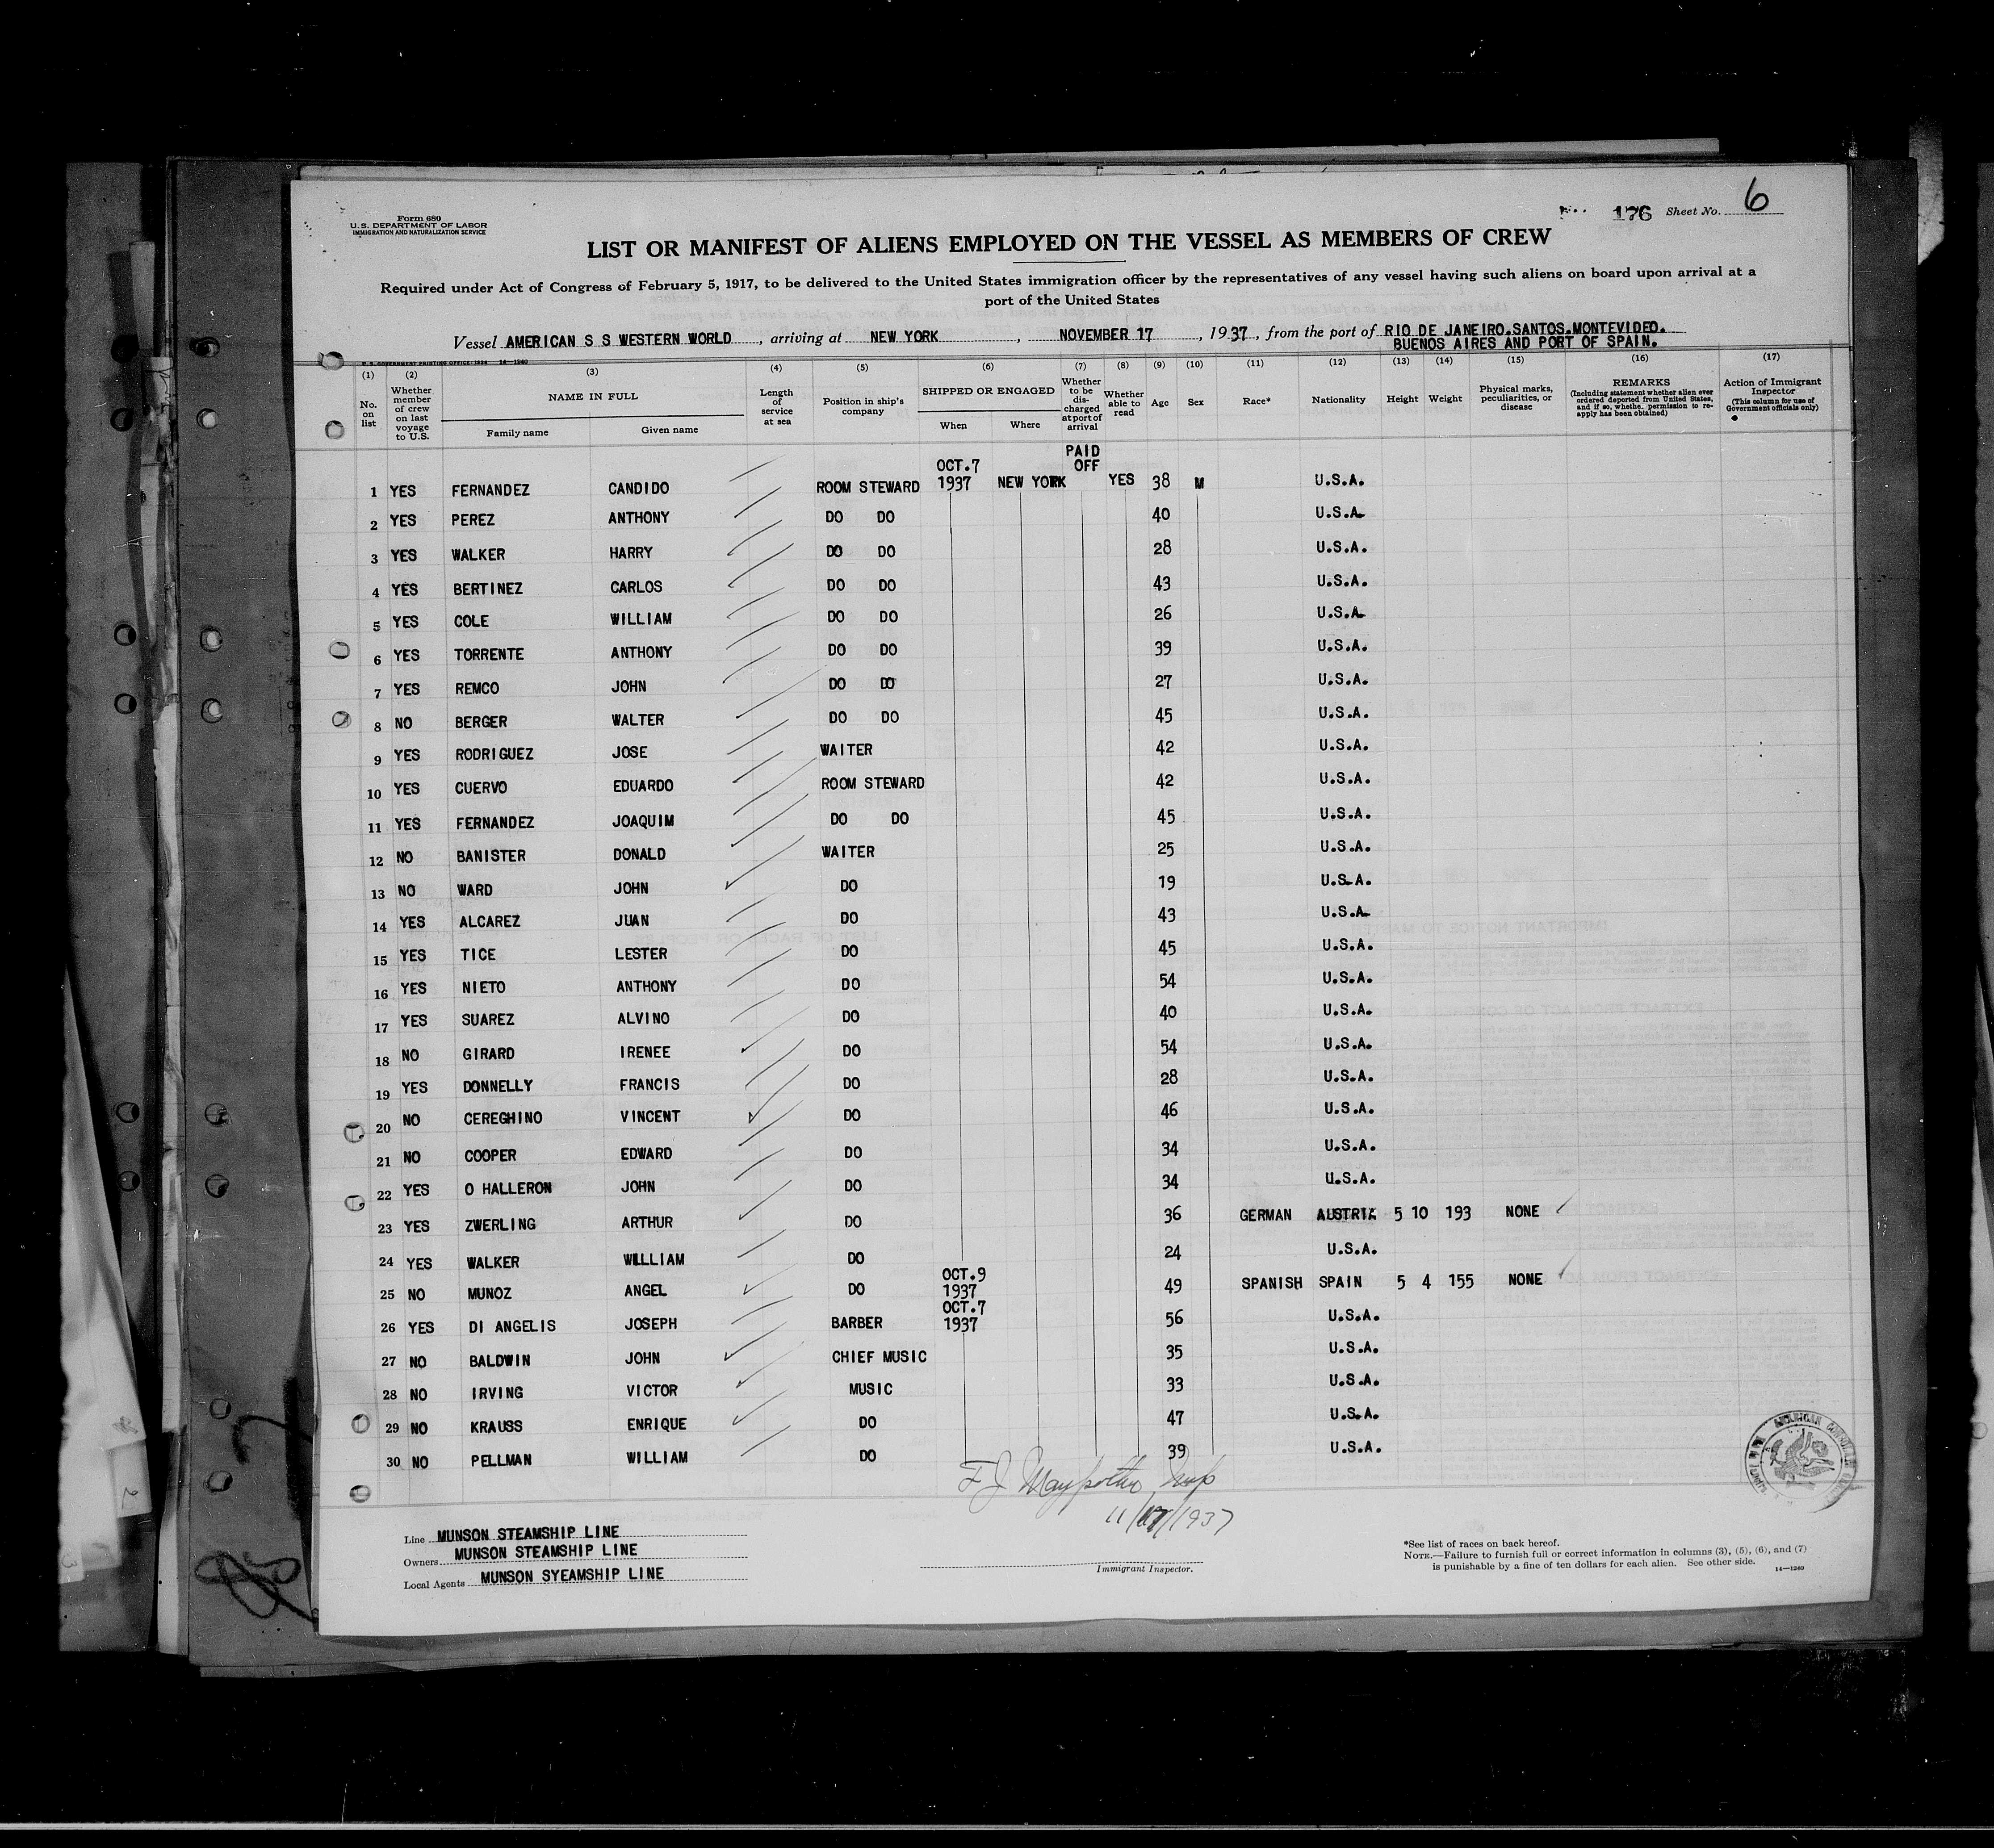 Form 680
U. S. DEPARTMENT OF LABOR
IMMIGRATION AND NATURALIZATION SERVICE
176 Sheet No. 6
LIST OR MANIFEST OF ALIENS EMPLOYED ON THE VESSEL AS MEMBERS OF CREW
Required under Act of Congress of February 5, 1917, to be delivered to the United States immigration officer by the representatives of any vessel having such aliens on board upon arrival at a
port of the United States
Vessel AMERICAN S S WESTERN WORLD, arriving at NEW YORK, NOVEMBER 17, 1937, from the port of RIO DE JANEIRO.SANTOS.MONTEVIDEO.
BUENOS AIRES AND PORT OF SPAIN.
U. S. GOVERNMENT PRINTING OFFICE: 1934 14—1240
(1) No. on list
(2) Whether member of crew on last voyage to U.S.
(3) NAME IN FULL Family name Given name
(4) Length of service at sea
(5) Position in ship's company
(6) SHIPPED OR ENGAGED When Where
(7) Whether to be discharged at port of arrival
(8) Whether able to read
(9) Age
(10) Sex
(11) Race*
(12) Nationality
(13) Height
(14) Weight
(15) Physical marks, peculiarities, or disease
(16) REMARKS (Including statement whether alien ever ordered deported from United States, and if so, whether permission to reapply has been obtained)
(17) Action of Immigrant Inspector (This column for use of Government officials only)
PAID
OCT.7 OFF
1 YES FERNANDEZ CANDIDO ROOM STEWARD 1937 NEW YORK YES 38 M U.S.A.
2 YES PEREZ ANTHONY DO DO 40 U.S.A.
3 YES WALKER HARRY DO DO 28 U.S.A.
4 YES BERTINEZ CARLOS DO DO 43 U.S.A.
5 YES COLE WILLIAM DO DO 26 U.S.A.
6 YES TORRENTE ANTHONY DO DO 39 U.S.A.
7 YES REMCO JOHN DO DO 27 U.S.A.
8 NO BERGER WALTER DO DO 45 U.S.A.
9 YES RODRIGUEZ JOSE WAITER 42 U.S.A.
10 YES CUERVO EDUARDO ROOM STEWARD 42 U.S.A.
11 YES FERNANDEZ JOAQUIM DO DO 45 U.S.A.
12 NO BANISTER DONALD WAITER 25 U.S.A.
13 NO WARD JOHN DO 19 U.S.A.
14 YES ALCAREZ JUAN DO 43 U.S.A.
15 YES TICE LESTER DO 45 U.S.A.
16 YES NIETO ANTHONY DO 54 U.S.A.
17 YES SUAREZ ALVINO DO 40 U.S.A.
18 NO GIRARD IRENEE DO 54 U.S.A.
19 YES DONNELLY FRANCIS DO 28 U.S.A.
20 NO CEREGHINO VINCENT DO 46 U.S.A.
21 NO COOPER EDWARD DO 34 U.S.A.
22 YES O HALLERON JOHN DO 34 U.S.A.
23 YES ZWERLING ARTHUR DO 36 GERMAN AUSTRIA 5 10 193 NONE
24 YES WALKER WILLIAM DO 24 U.S.A.
OCT.9
25 NO MUNOZ ANGEL DO 1937 49 SPANISH SPAIN 5 4 155 NONE
OCT.7
26 YES DI ANGELIS JOSEPH BARBER 1937 56 U.S.A.
27 NO BALDWIN JOHN CHIEF MUSIC 35 U.S.A.
28 NO IRVING VICTOR MUSIC 33 U.S.A.
29 NO KRAUSS ENRIQUE DO 47 U.S.A.
30 NO PELLMAN WILLIAM DO 39 U.S.A.
F J
11/17/1937
Line MUNSON STEAMSHIP LINE
Owners MUNSON STEAMSHIP LINE
Local Agents MUNSON SYEAMSHIP LINE
Immigrant Inspector.
*See list of races on back hereof.
NOTE.—Failure to furnish full or correct information in columns (3), (5), (6), and (7)
is punishable by a fine of ten dollars for each alien. See other side.
14—1240